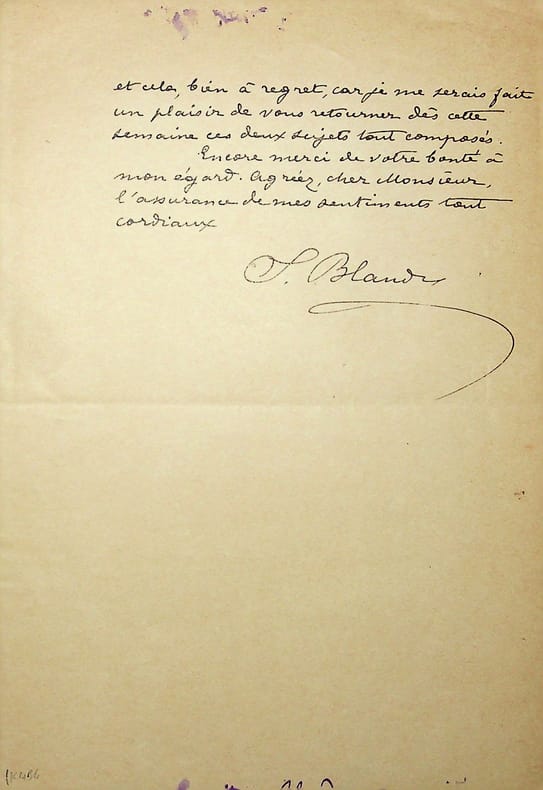 et cela, bien à regret, car je me serais fait
un plaisir de vous retourner dès cette
semaine ces deux sujets tout composés.
Encore merci de votre bonté à
mon égard. Agréez, cher Monsieur,
l'assurance de mes sentiments tout
cordiaux